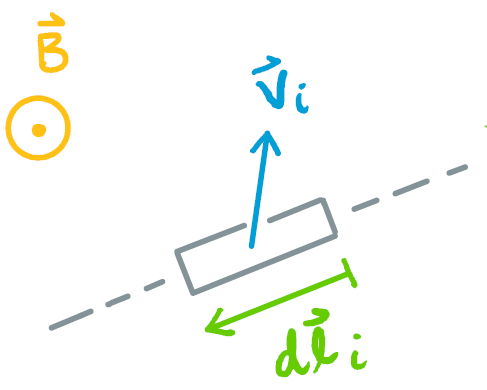 B⃗
v⃗ᵢ
dℓ⃗ᵢ